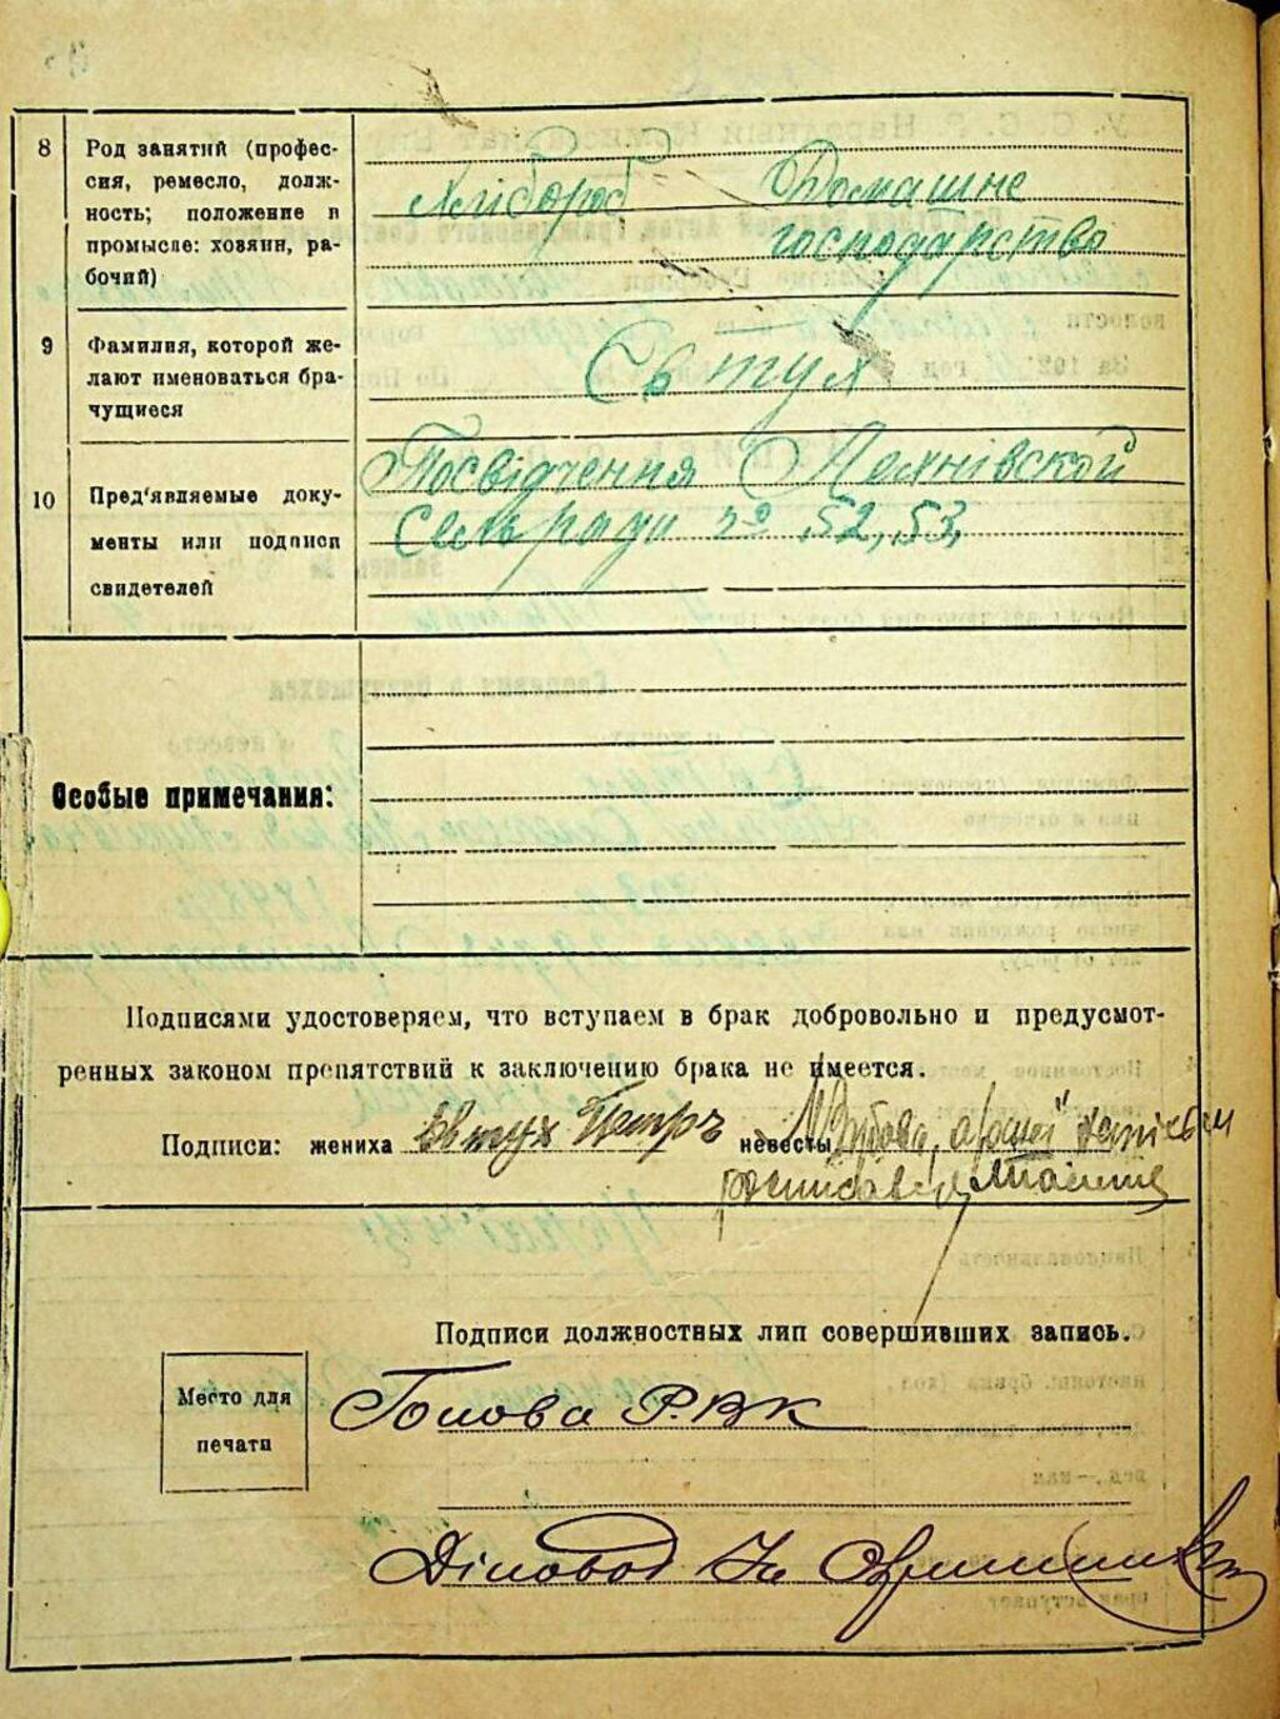 8 Род занятий (профес-
сия, ремесло, долж-
ность; положение в
промысле: хозяин, ра-
бочий)
Хлібороб
Домашне
господарство
9 Фамилия, которой же-
лают именоваться бра-
чущиеся
Євтух
10 Пред'являемые доку-
менты или подписи
свидетелей
Посвідчення
Сельради № 52, 53,
Особые примечания:
Подписями удостоверяем, что вступаем в брак добровольно и предусмот-
ренных законом препятствий к заключению брака не имеется.
Подписи: жениха Євтух Петръ невесты
Подписи должностных лиц совершивших запись.
Место для
печати
Голова Р.В.К
Діловод